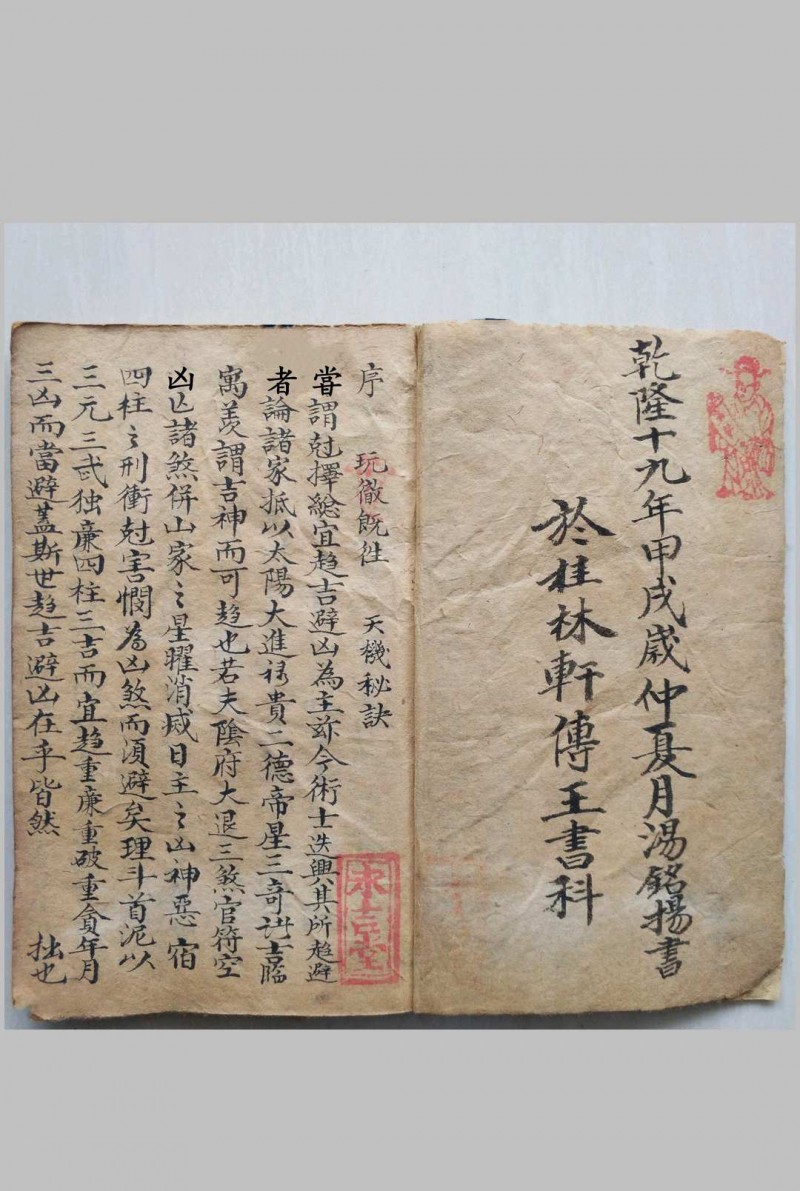 乾隆十九年甲戌歲仲夏月湯銘揚書
於桂林軒傳王書科
序　玩徹既往　天機秘訣
甞謂尅擇総宜趋吉避凶為主玆今術士迭興其所趋避
者論諸家抵以太陽大進祿貴二德帝星三奇諸吉臨
寓羙謂吉神而可趋也若夫陰府大退三煞官符空
凶亡諸煞併山家之星曜消烕日主之凶神惡宿
四柱之刑衝尅害憫為凶煞而湏避矣理斗首泥以
三元三武独廉四柱三吉而宜趋重廉重破重貪年月
三凶而當避蓋斯世趋吉避凶在乎皆然　拙也